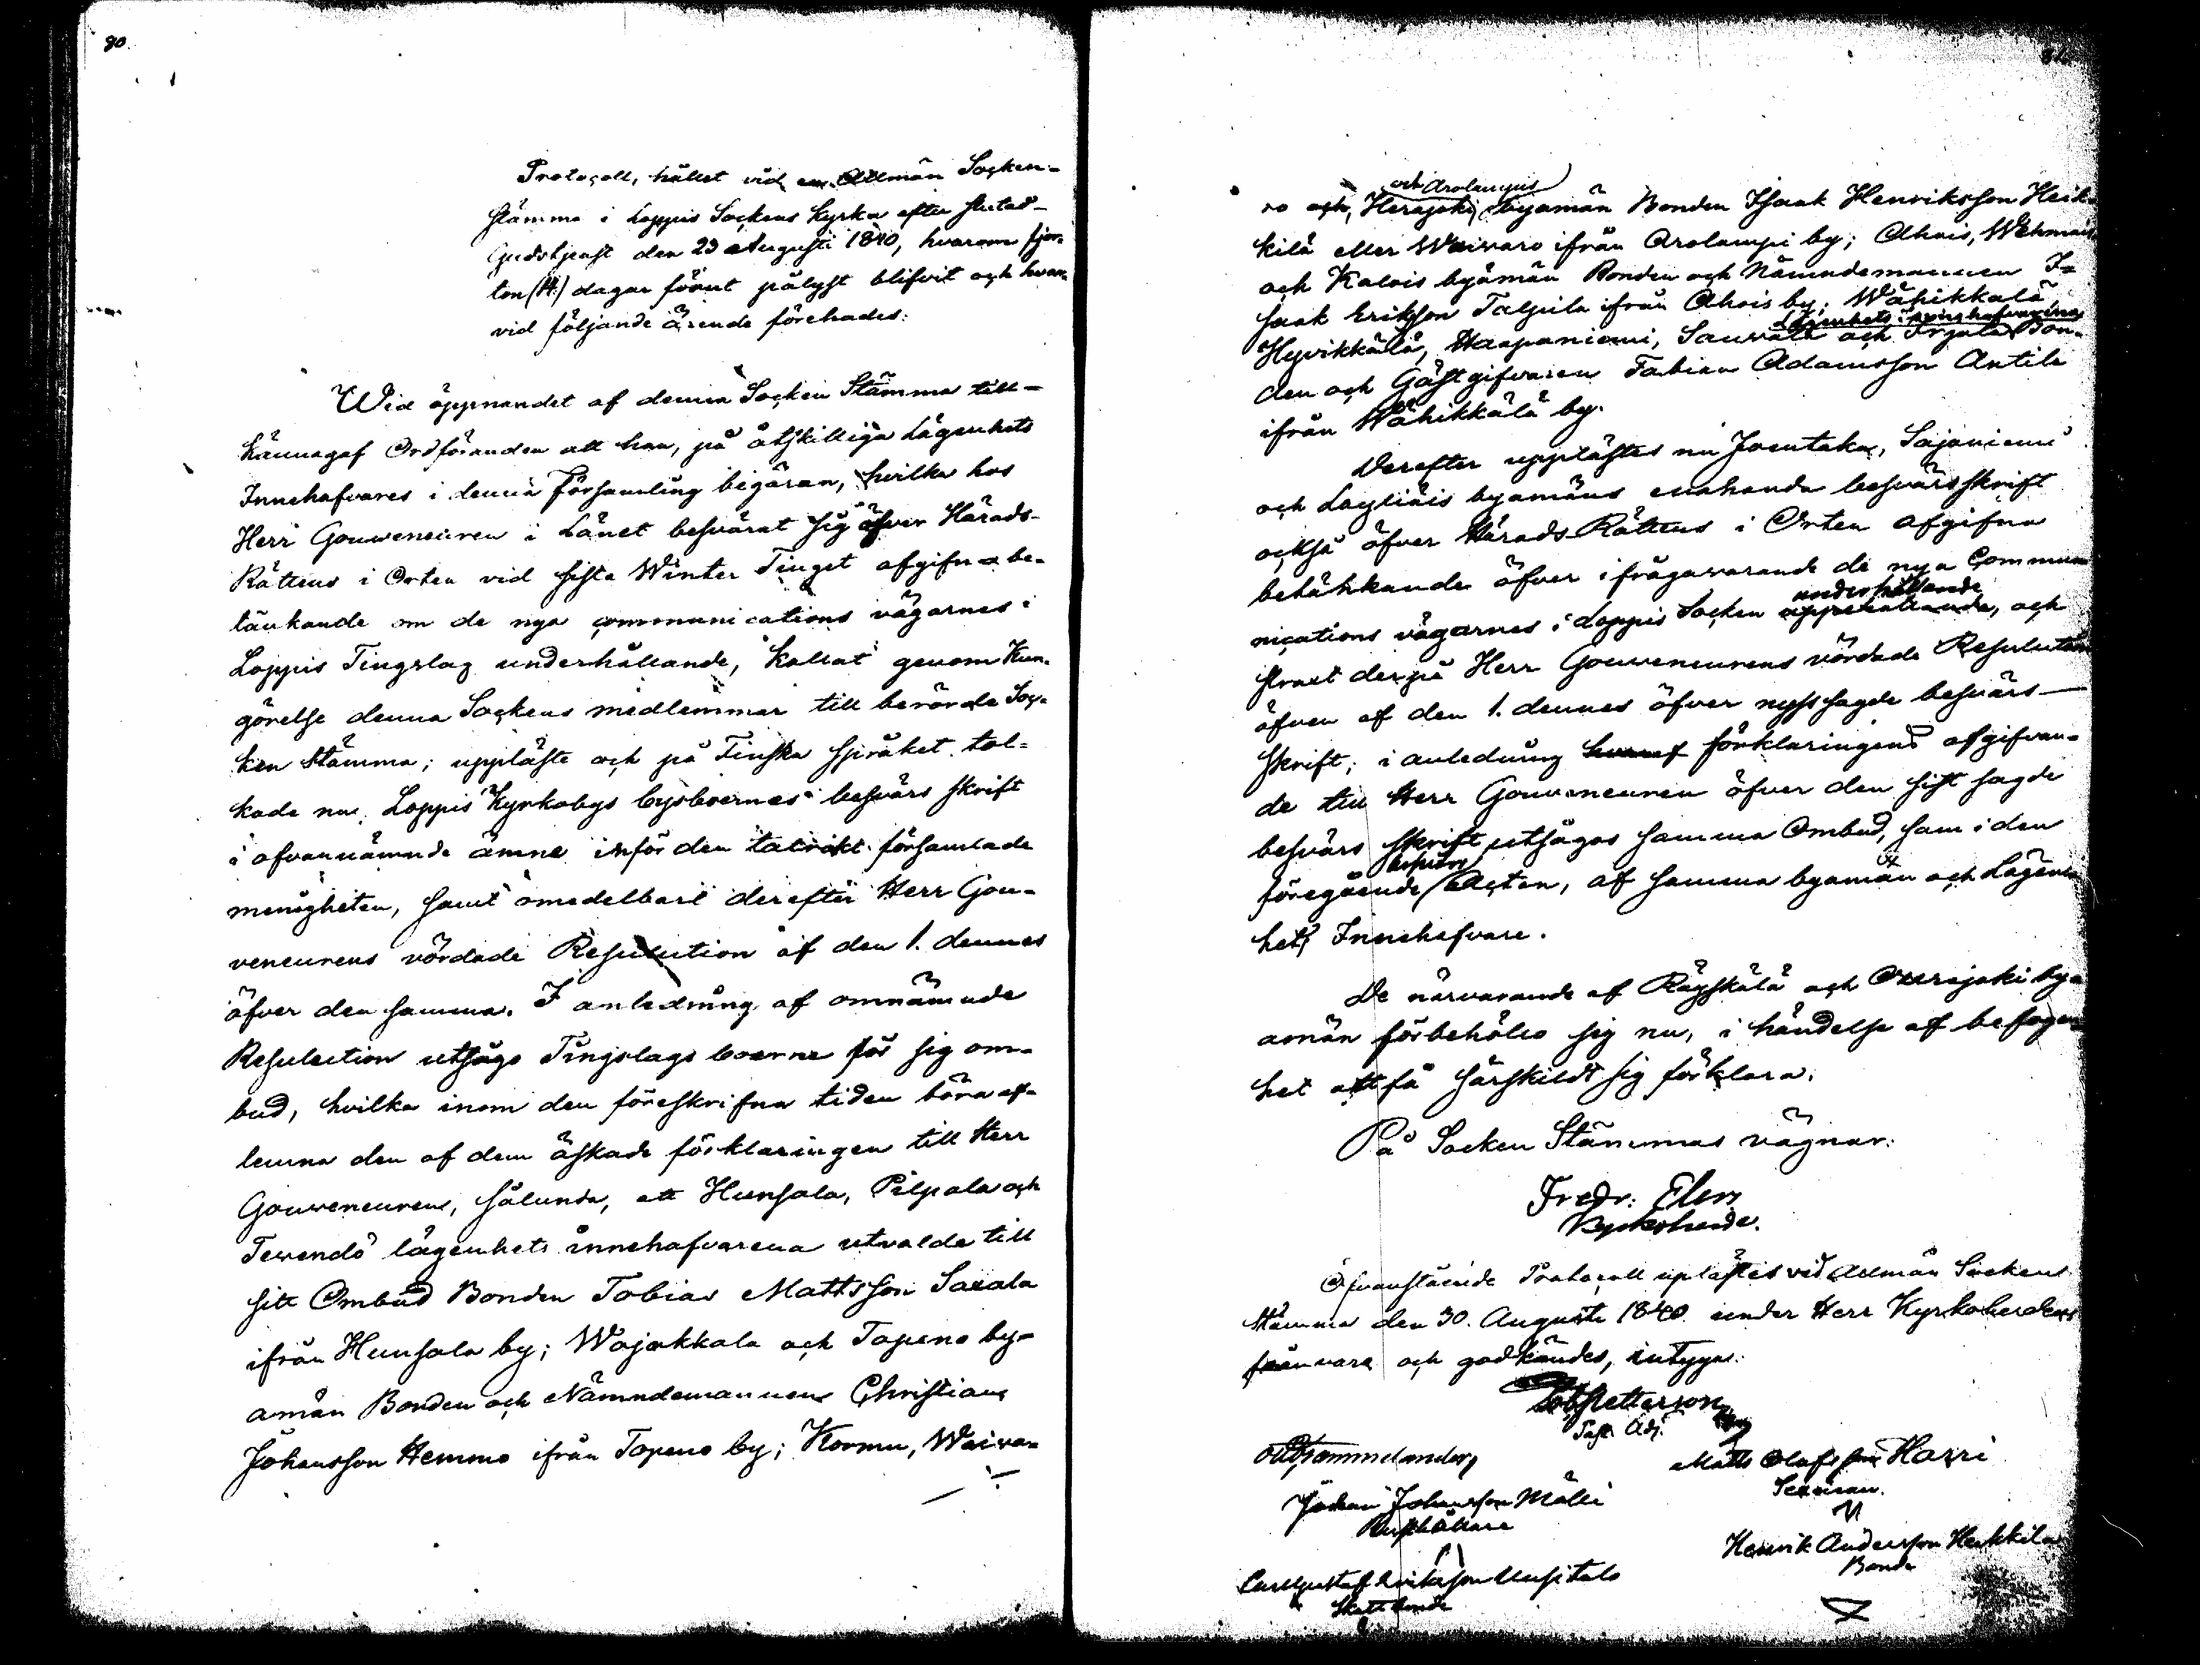 80.
Protocoll, hållet vid en Allmän Socken-
stämma i Loppis Sockens Kyrka efter slutad
Gudstjenst den 23 Augusti 1840, hvarom fjor-
ton (14.) dagar förut pålyst blifvit och hvar-
vid följande ärende förehades:
Wid öppnandet af denna Socken Stämma till-
kännagaf Ordföranden att han, på åtskilliga Lägenhets
Innehafvares i denna Församling begäran, hvilka hos
Herr Gouverneuren i Länet besvärat sig öfver Härads-
Rättens i Orten vid sista Winter Tinget afgifna be-
tänkande om de nya communications vägarnes i
Loppis Tingslag underhållande, kallat genom Kun-
görelse denna Sockens medlemmar till berörde Soc-
ken Stämma; uppläste och på Finska språket tol-
kade nu Loppis Kyrkobys bysboernes besvärs skrift
i ofvannämnde ämne inför den talrikt församlade
menigheten, samt omedelbart derefter Herr Gou-
verneurens vördade Resolution af den 1. dennes
öfver den samma. I anledning af omnämnde
Resolution utsågo Tingslags boerne för sig om-
bud, hvilka inom den föreskrifna tiden böra af-
lemna den af dem äskade förklaringen till Herr
Gouverneuren, sålunda, att Hunsala, Pilpala och
Tevendö lägenhets innehafvarena utvalde till
sitt Ombud Bonden Tobias Mattsson Saxala
ifrån Hunsala by; Wojakkala och Topeno by-
amän Bonden och Nämndemannen Christian
Johansson Hemmo ifrån Topeno by; Kormu, Waiva-
81.
och Arolampis
ro och Herajoki byamän Bonden Isaak Henriksson Heik-
kilä eller Waivaro ifrån Arolampi by; Ahois, Wehmais
och Kalois byamän Bonden och Nämndemannen I-
saak Eriksson Talpila ifrån Ahois by; Wähikkälä,
lägenhets innehafvarena
Hyvikkälä, Haapaniemi, Sauvala och Bon-
den och Gästgifvaren Fabian Adamsson Antila
ifrån Wähikkälä by.
Derefter upplästes nu Joentaka, Sajaniemi
och Läyliäis byamäns enahanda besvärsskrift
också öfver Härads Rättens i Orten afgifna
betänkande öfver ifrågavarande de nya Commu
underhållande
nications vägarnes i Loppis Socken, och
straxt derpå Herr Gouverneurens vördade Resolution
äfven af den 1. dennes öfver nyss sagde besvärs-
skrift; i anledning hvaraf förklaringens afgifvan-
de till Herr Gouverneuren öfver den sist sagde
besvärs skrift utsågos samma Ombud, som i den
föregående Acten, af samma byamän och Lägen-
hets Innehafvare.
De närvarande af Räyskälä och byä
amän förbehöllo sig nu, i händelse af befogen-
het att få särskildt sig förklara.
På Socken Stämmas vägnar:
Fredr: Elers
Kyrkoherde.
Ofvanstående Protocoll uplästes vid Allmän Socken
Stämma den 30. Augusti 1840. under Herr Kyrkoherdens
frånvaro och godkändes, intyga:
Petterson
Past. Adj.
Matts Olofsson Harri
Sexman.
Johan Johansson Mälli
Rusthållare
Henrik Andersson Heikkilä
Bonde
Carl Gustaf Eriksson Uusitalo
Skattebonde